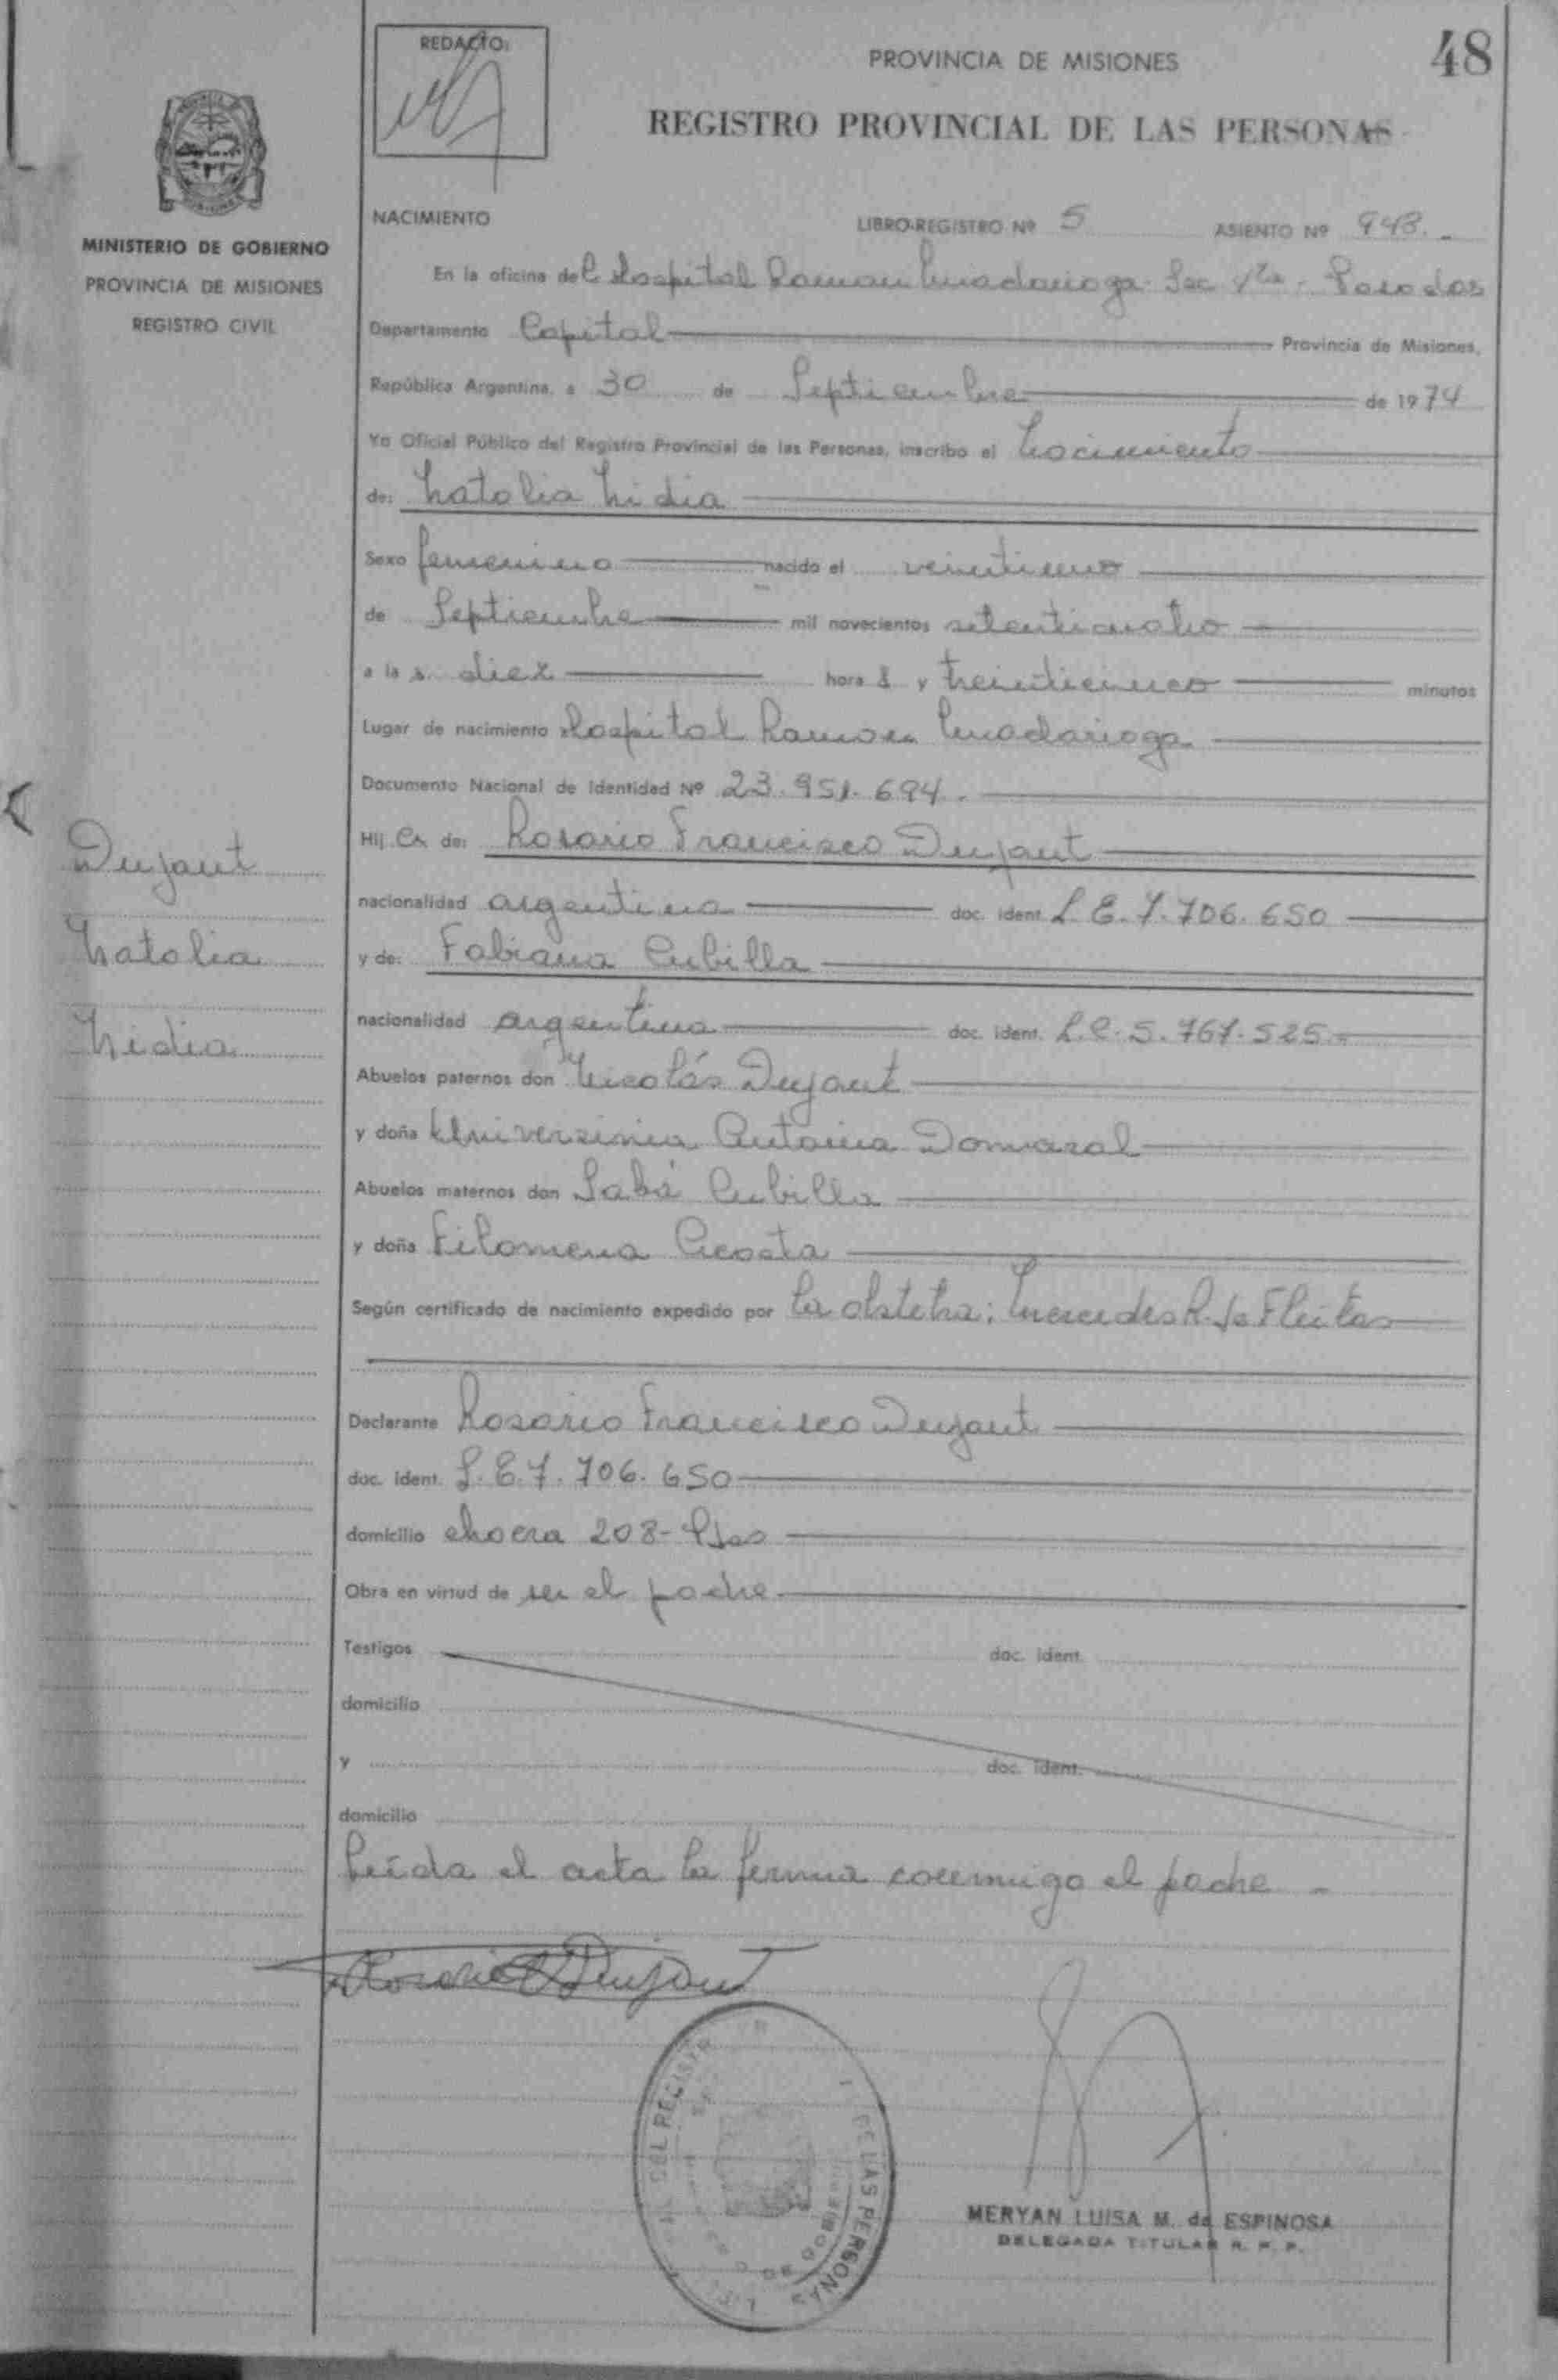 REDACTO:
PROVINCIA DE MISIONES
48
REGISTRO PROVINCIAL DE LAS PERSONAS
MINISTERIO DE GOBIERNO
PROVINCIA DE MISIONES
REGISTRO CIVIL
NACIMIENTO LIBRO-REGISTRO Nº 5 ASIENTO Nº 948.
En la oficina del Hospital Ramon Madariaga Sec 1ra. Posadas
Departamento Capital Provincia de Misiones,
República Argentina, a 30 de Septiembre de 1974
Yo Oficial Público del Registro Provincial de las Personas, inscribo el Nacimiento
de: Natalia Nidia
Sexo femenino nacido el veintiuno
de Septiembre mil novecientos setenticuatro
a la s diez hora s y treinticinco minutos
Lugar de nacimiento Hospital Ramon Madariaga
Documento Nacional de Identidad Nº 23.951.694.
Hij a de: Rosario Francisco Dujaut
nacionalidad argentina doc. ident. L.E.7.706.650
y de: Fabiana Cubilla
nacionalidad argentina doc. ident. L.C.5.767.525
Abuelos paternos don Nicolás Dujaut
y doña Antonia
Abuelos maternos don Sabá Cubilla
y doña Filomena Acosta
Según certificado de nacimiento expedido por la obstetra: Mercedes R. de Fleitas
Declarante Rosario Francisco Dujaut
doc. ident. L.E.7.706.650
domicilio chacra 208- Pdas
Obra en virtud de ser el padre
Testigos doc. ident.
domicilio
y doc. ident.
domicilio
Leída el acta la firma conmigo el padre
Dujaut
Natalia
Nidia
MERYAN LUISA M. de ESPINOSA
DELEGADA TITULAR R. P. P.
DEL REGISTRO
DE LAS PERSONAS